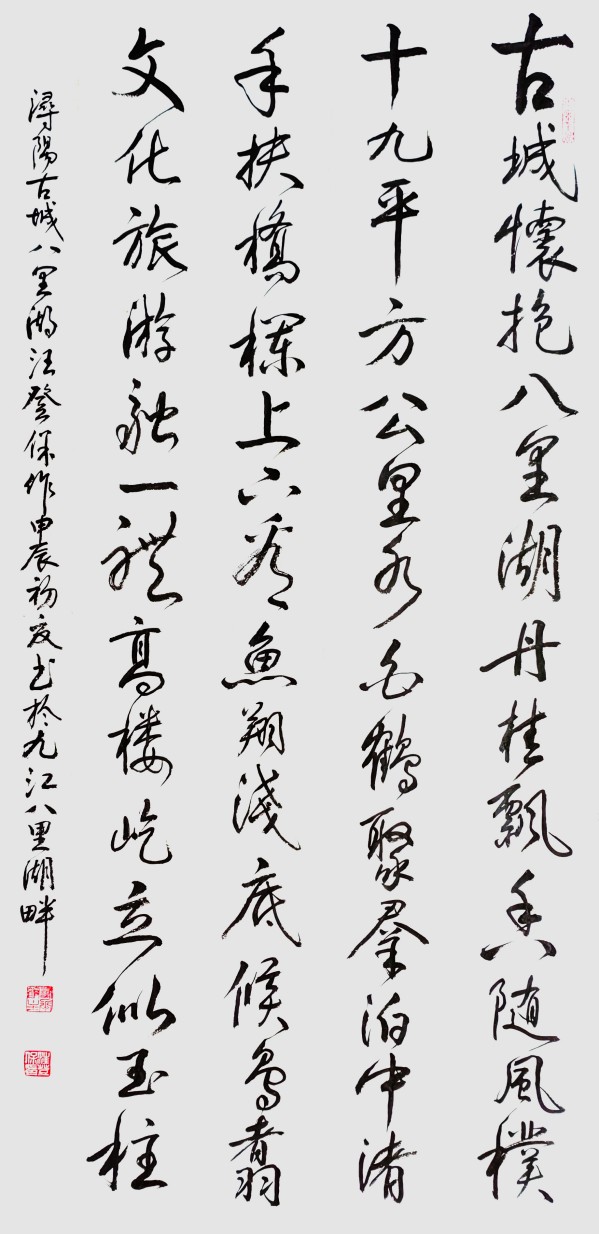 古城懷抱八里湖丹桂飄香随風樸
十九平方公里水白鶴聚羣泊中渚
手扶橋欄上下看魚翔淺底候鳥翥
文化旅游融一體高樓屹立似玉柱
潯陽古城八里湖汪登保作甲辰初夏书於九江八里湖畔